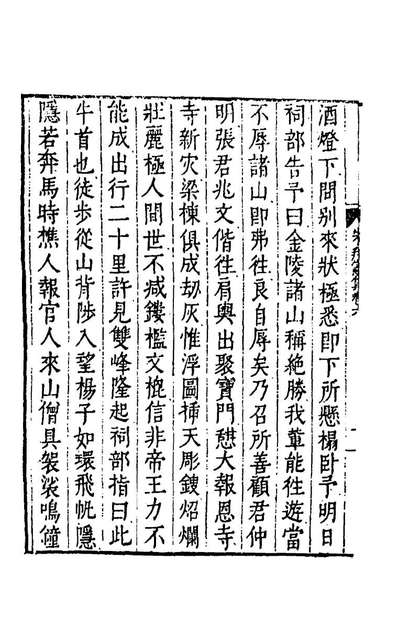 酒燈下問别來狀極悉即下所懸榻卧予明日
祠部告予曰金陵諸山稱絶勝我輩能徃遊當
不辱諸山即弗徃良自辱矣乃召所善顧君仲
明張君兆文偕徃肩輿出聚寶門憇大報恩寺
寺新灾梁棟俱成劫灰惟浮圖揷天彫鎪炤爛
壯麗極人間世不减鏤檻文㮰信非帝王力不
能成出行二十里許見雙峰隆起祠部指曰此
牛首也徒步從山背陟入望楊子如環飛帆隱
隱若奔馬時樵人報官人來山僧具袈裟鳴鐘